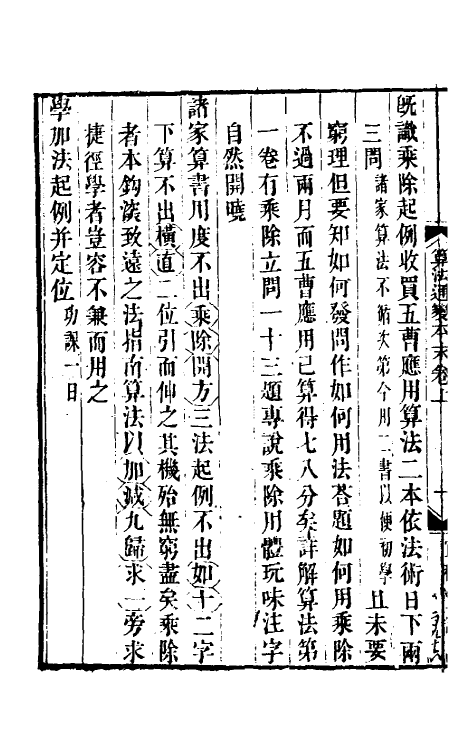 既識乘除起例收買五曹應用算法二本依法術日下兩
三問諸家算法不循次第今用二書以便初學且未要
窮理但要知如何發問作如何用法荅題如何用乘除
不過兩月而五曹應用已算得七八分矣詳解算法第
一卷有乘除立問一十三題專說乘除用體玩味注字
自然開曉
諸家算書用度不出乘除開方三法起例不出如十二字
下算不出橫直二位引而伸之其機殆無窮盡矣乘除
者本鈎深致遠之法指南算法以加減九歸求一旁求
捷徑學者豈容不兼而用之
學加法起例并定位功課一日
算法通變本末卷上 十